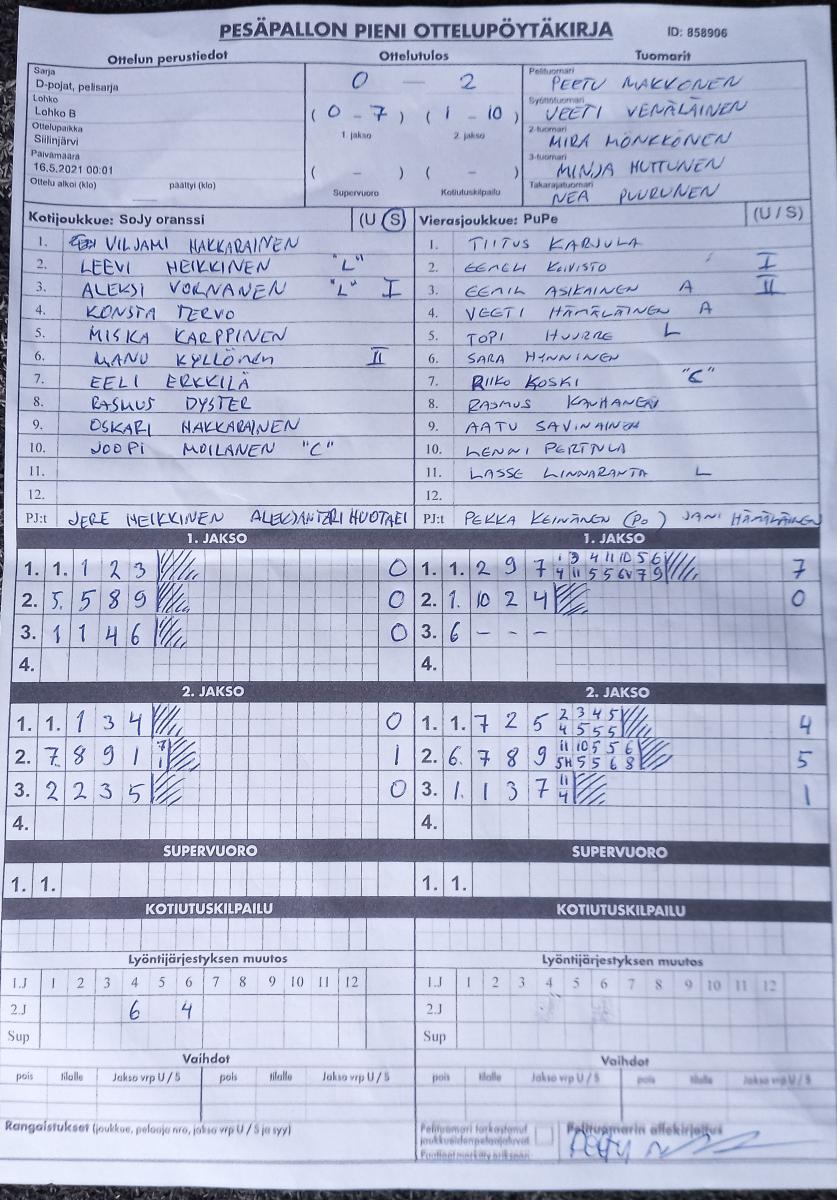 PESÄPALLON PIENI OTTELUPÖYTÄKIRJA ID: 858906
Ottelun perustiedot Ottelutulos Tuomarit
Sarja
D-pojat, pelisarja
Lohko
Lohko B
Ottelupaikka
Siilinjärvi
Päivämäärä
16.5.2021 00:01
Ottelu alkoi (klo) päättyi (klo)
0 — 2
(0 - 7) (1 - 10)
1. jakso 2. jakso
( - ) ( - )
Supervuoro Kotiutuskilpailu
Pelituomari
PEETU MAKKONEN
Syöttötuomari
VEETI VENÄLÄINEN
2-tuomari
MIRA MÖNKKÖNEN
3-tuomari
MINJA HUTTUNEN
Takarajatuomari
NEA PUURUNEN
Kotijoukkue: SoJy oranssi (U / S)
1. VILJAMI HAKKARAINEN
2. LEEVI HEIKKINEN "L"
3. ALEKSI VORNANEN "L" I
4. KONSTA TERVO
5. MISKA KARPPINEN
6. MANU KYLLÖNEN II
7. EELI ERKKILÄ
8. RASMUS DYSTER
9. OSKARI HAKKARAINEN
10. JOOPI MOILANEN "C"
11.
12.
PJ:t JERE HEIKKINEN ALEKSANTERI
Vierasjoukkue: PuPe (U / S)
1. TIITUS KARJULA
2. EEMELI KOIVISTO I
3. EEMIL ASIKAINEN A II
4. VEETI HÄMÄLÄINEN A
5. TOPI HUURRE L
6. SARA HYNNINEN
7. RIIKO KOSKI "C"
8. RASMUS KAUHANEN
9. AATU SAVINAINEN
10. LENNI PERTTULA
11. LASSE LINNARANTA L
12.
PJ:t PEKKA KEINÄNEN (PO) JANI HÄMÄLÄINEN
1. JAKSO
1. 1. 1 2 3 0
2. 5. 5 8 9 0
3. 1 1 4 6 0
4.
1. JAKSO
1. 1. 2 9 7 1 3 4 11 10 5 6 7
2. 1. 10 2 4 0
3. 6 - - -
4.
2. JAKSO
1. 1. 1 3 4 0
2. 7. 8 9 1 7 1 1
3. 2 2 3 5 0
4.
2. JAKSO
1. 1. 7 2 5 2 3 4 5 4
4 5 5 5
2. 6. 7 8 9 11 10 5 5 6 5
3. 1. 1 3 7 11 4 1
4.
SUPERVUORO
1. 1.
SUPERVUORO
1. 1.
KOTIUTUSKILPAILU
KOTIUTUSKILPAILU
Lyöntijärjestyksen muutos
1.J 1 2 3 4 5 6 7 8 9 10 11 12
2.J 6 4
Sup
Lyöntijärjestyksen muutos
1.J 1 2 3 4 5 6 7 8 9 10 11 12
2.J
Sup
Vaihdot
pois tilalle Jakso vrp U / S pois tilalle Jakso vrp U / S
Vaihdot
pois tilalle Jakso vrp U / S pois tilalle Jakso vrp U / S
Rangaistukset (joukkue, pelaaja nro, jakso vrp U / S ja syy)
Pelituomari tarkastanut
Pelituomarin allekirjoitus